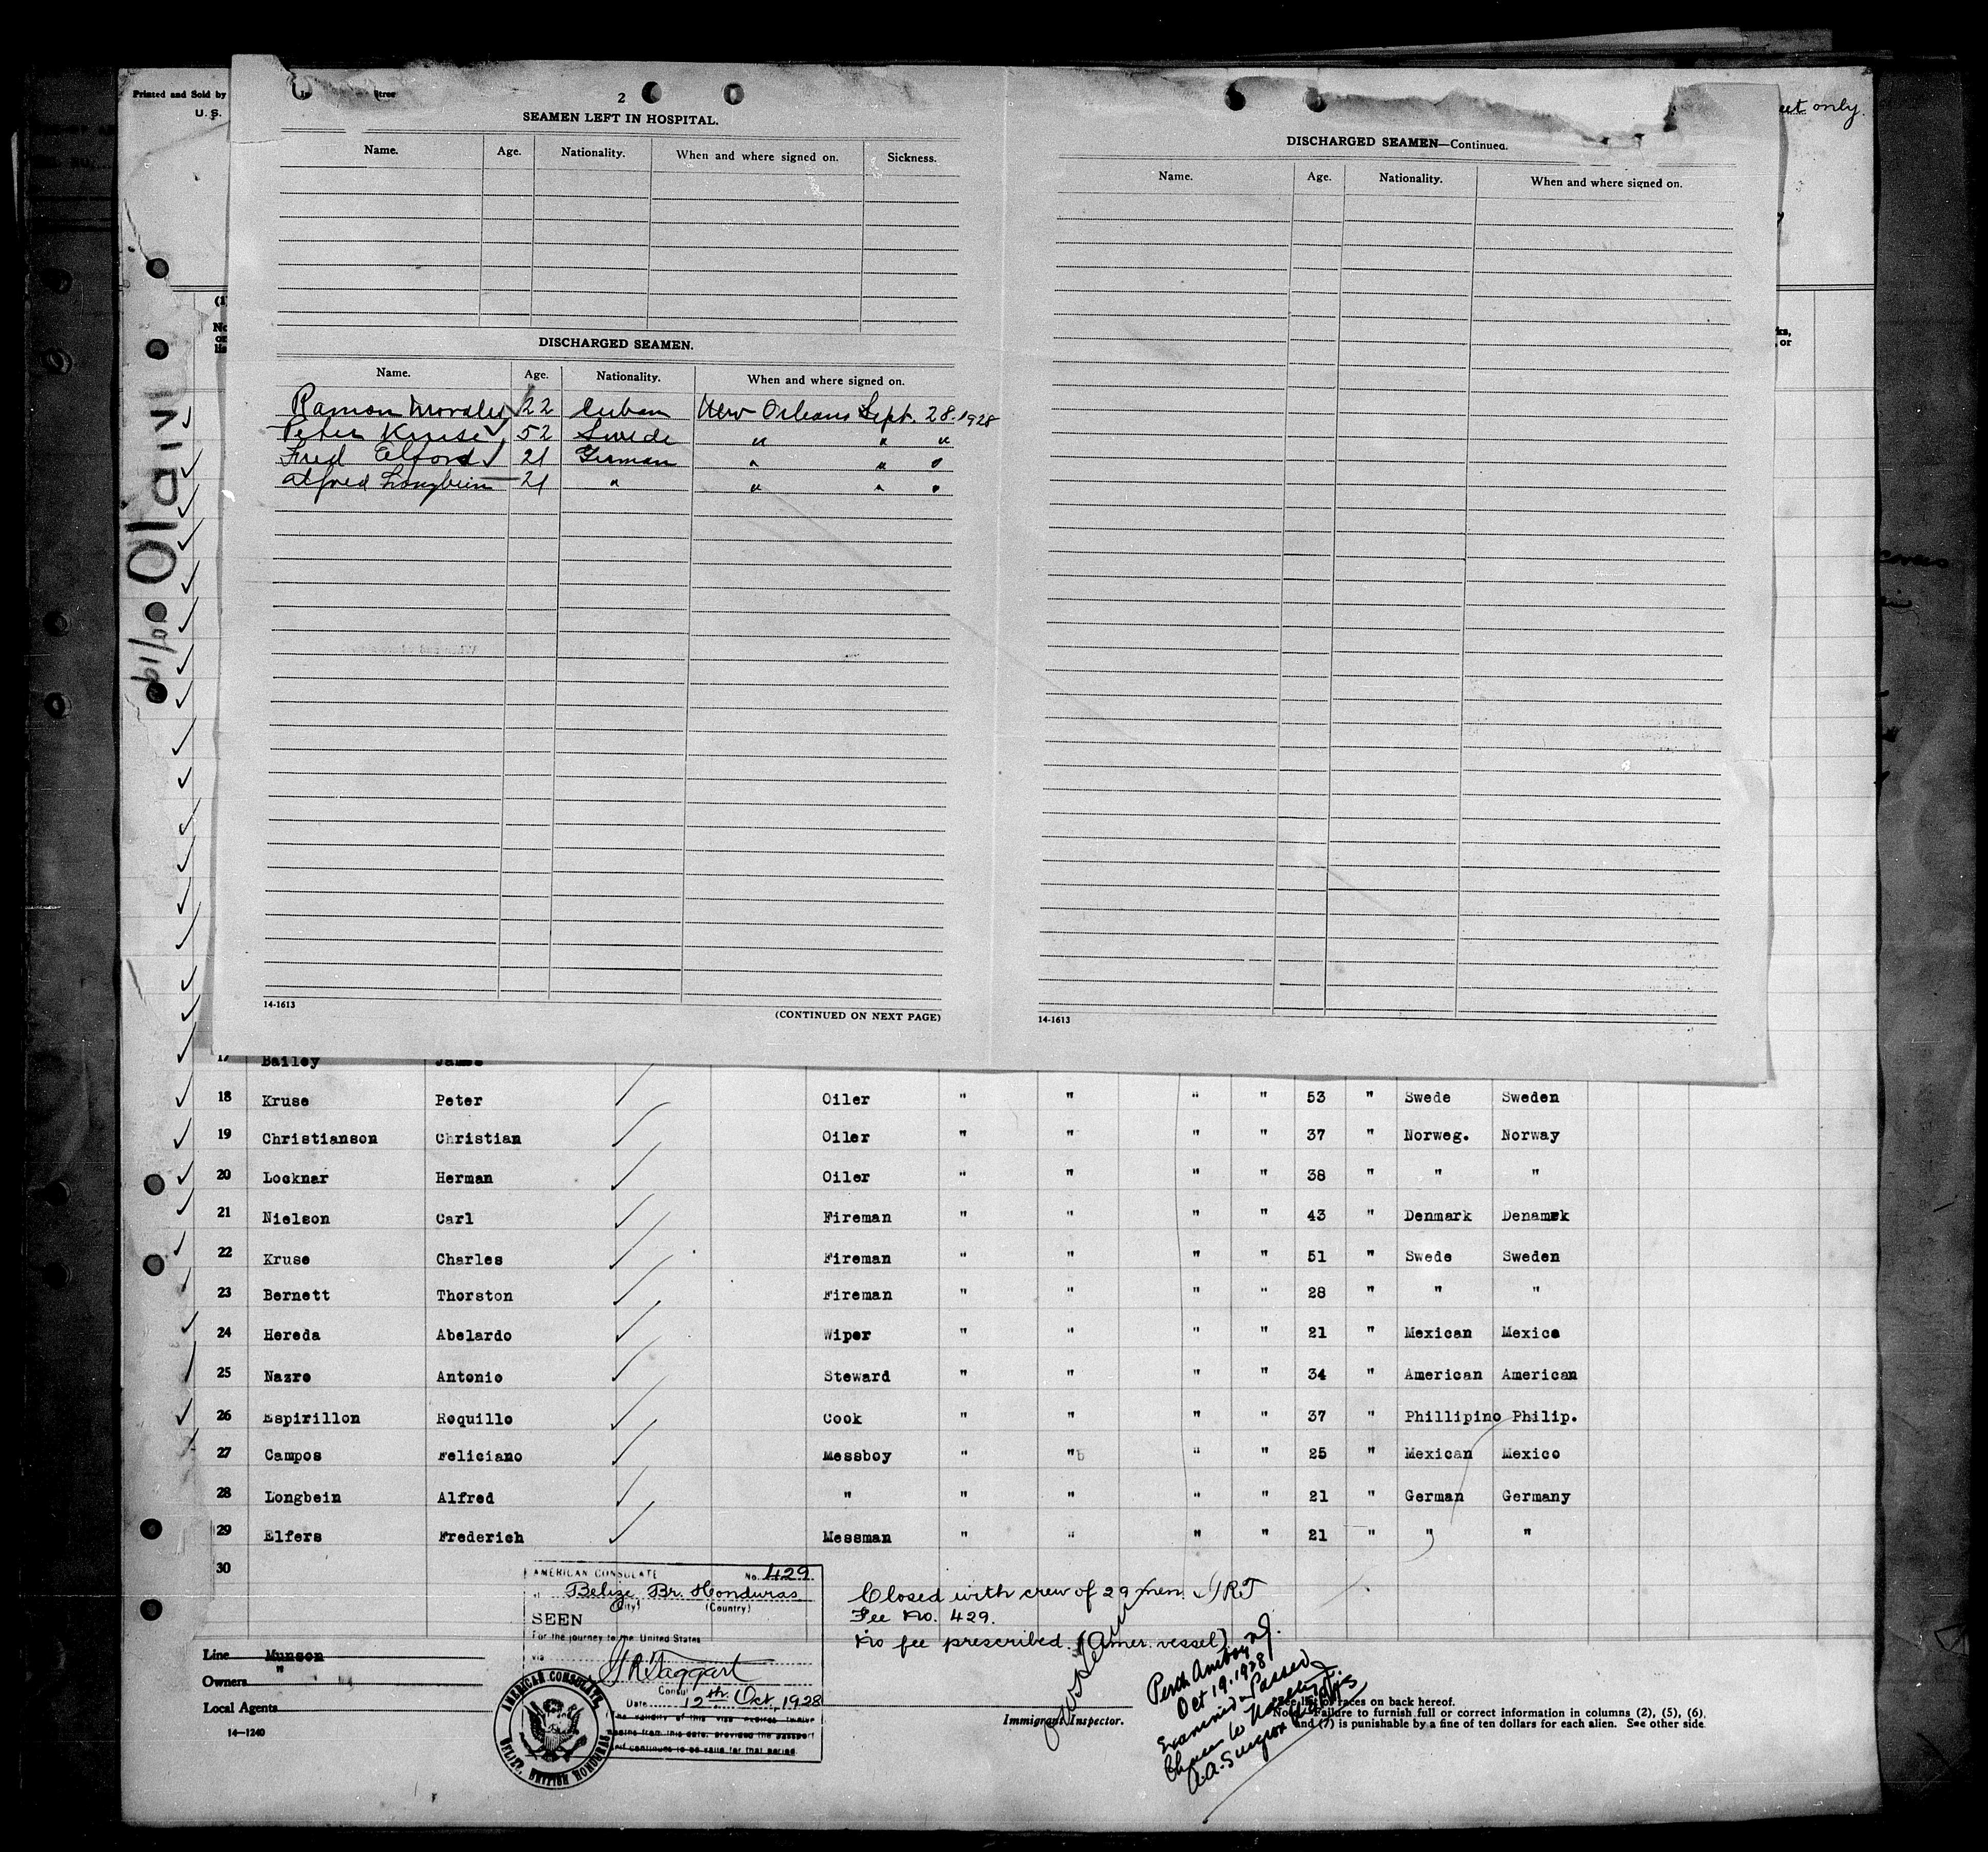 Printed and Sold by
U. S.
eet only.
2
SEAMEN LEFT IN HOSPITAL.
Name. Age. Nationality. When and where signed on. Sickness.
DISCHARGED SEAMEN.
Name. Age. Nationality. When and where signed on.
Ramon Morales 22 Cuban New Orleans Sept. 28. 1928
Peter Kruse 52 Swede " " "
Fred Elford 21 German " " "
Alfred Longbein 21 " " " "
14-1613
(CONTINUED ON NEXT PAGE)
DISCHARGED SEAMEN—Continued.
Name. Age. Nationality. When and where signed on.
14-1613
17 Bailey James
18 Kruse Peter Oiler " " " " 53 " Swede Sweden
19 Christianson Christian Oiler " " " " 37 " Norweg. Norway
20 Locknar Herman Oiler " " " " 38 " " "
21 Nielson Carl Fireman " " " " 43 " Denmark Denamrk
22 Kruse Charles Fireman " " " " 51 " Swede Sweden
23 Bernett Thorston Fireman " " " " 28 " " "
24 Hereda Abelardo Wiper " " " " 21 " Mexican Mexico
25 Nazro Antonio Steward " " " " 34 " American American
26 Espirillon Roquillo Cook " " " " 37 " Phillipino Philip.
27 Campos Feliciano Messboy " " " " 25 " Mexican Mexico
28 Longbein Alfred " " " " " 21 " German Germany
29 Elfers Frederich Messman " " " " 21 " " "
30
AMERICAN CONSULATE No. 429
at Belize Br. Honduras
(City) (Country)
SEEN
For the journey to the United States
via
Taggart
Consul
Date 12th Oct, 1928
The validity of this visa expires twelve
months from this date, provided the passport
continues to be valid for that period.
AMERICAN CONSULATE
BELIZE, BRITISH HONDURAS
Closed with crew of 29 men. GRT
Fee No. 429.
No fee prescribed. (Amer. vessel)
Line Munson
Owners "
Local Agents
14—1240
Immigrant Inspector.
Perth Amboy N.J.
Oct 19. 1928
Examined & Passed
A.A. Surgeon
See list of races on back hereof.
Note.—Failure to furnish full or correct information in columns (2), (5), (6),
and (7) is punishable by a fine of ten dollars for each alien. See other side